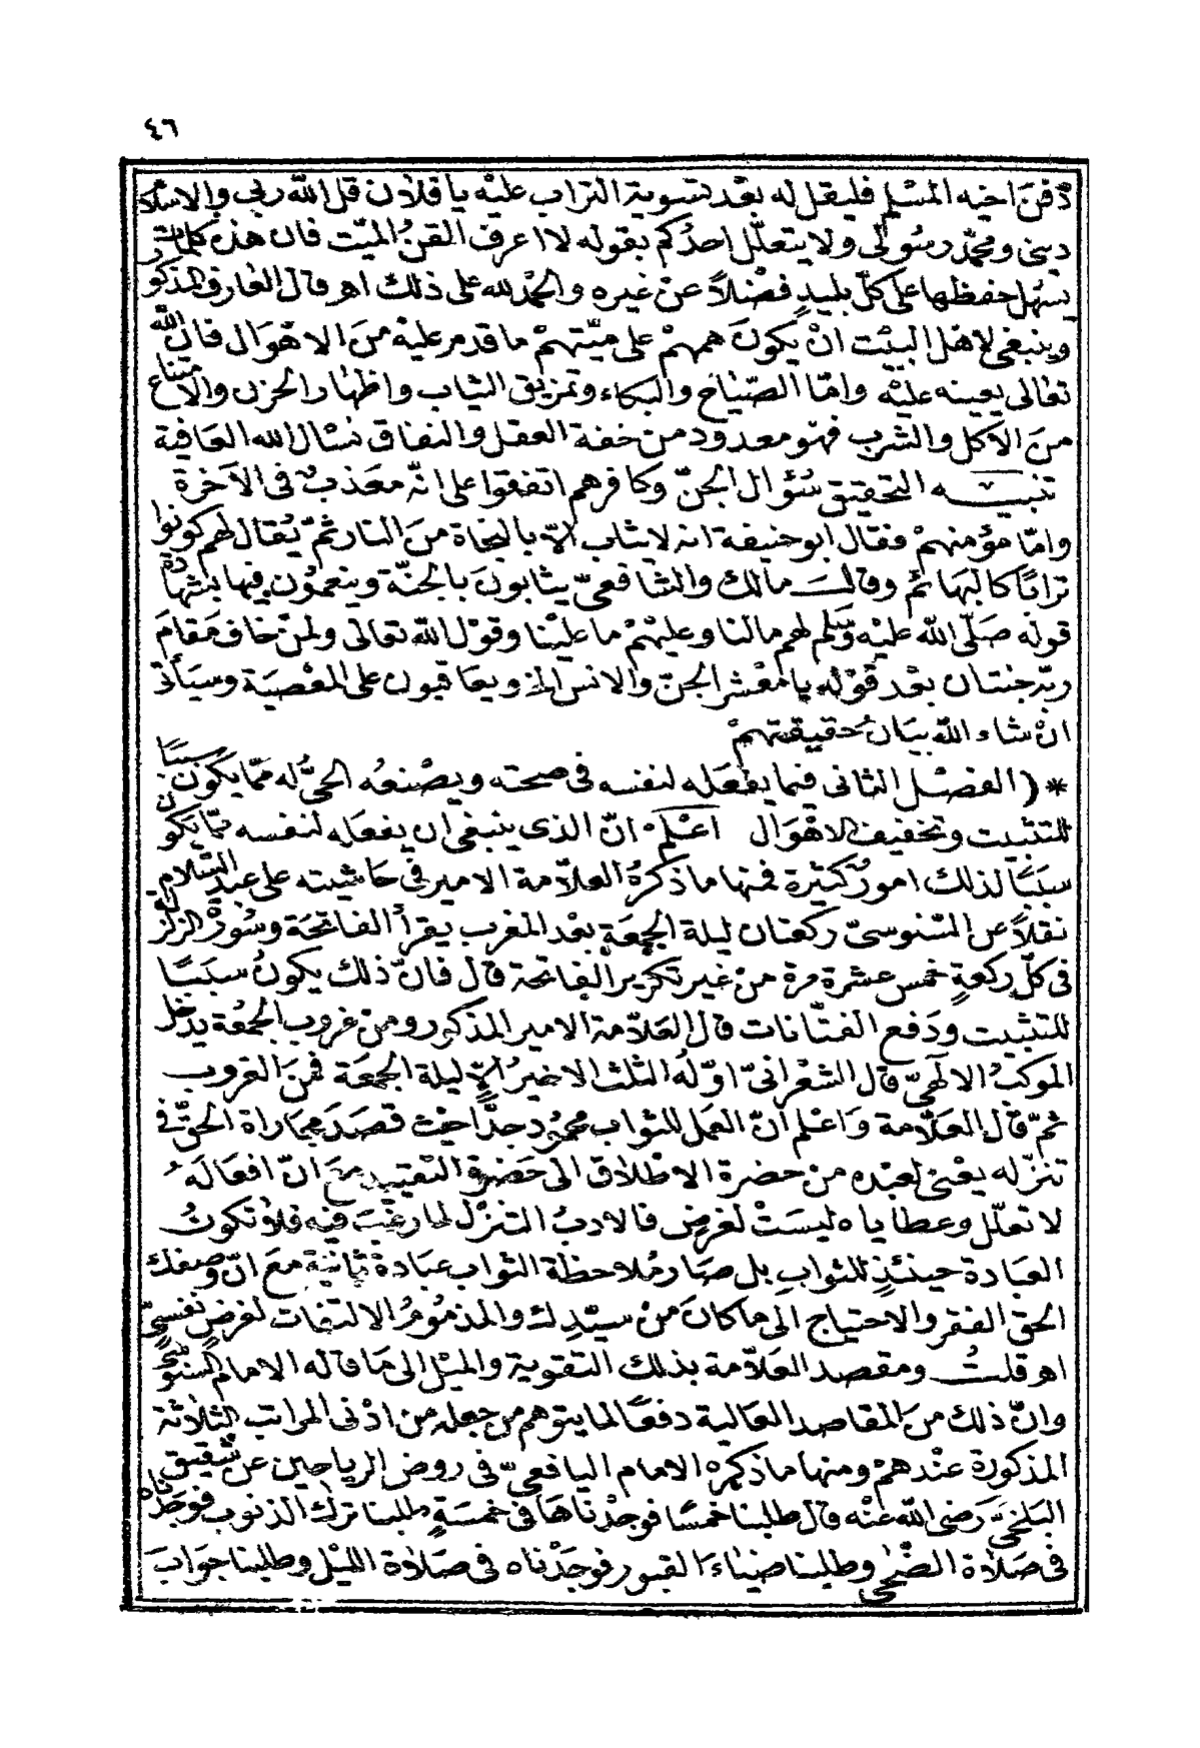 ٤٦
دَفَنَ اخيه المسْلم فليقل له بعْد تسوية التراب عليْه يا فلان قل الله ربى والاسلام
دينى ومحمّد رسُولى ولا يتعلّل احدُكم بقوله لا اعرف القنُ الميّت فان هذه كلمات
يسْهل حفظها على كلّ بليدٍ فضْلاً عنْ غيره والحمْد لله على ذلك اهـ قال العارف المذكور
وينبغى لاهْل البيْت انْ يكونَ همهمْ على ميّتهمْ ما قدم عليْه منَ الاهوَال فان الله
تعالى يعينه عليْه وامّا الصّيَاح والبكاء وتمزيق الثياب واظهار الحزن والامتناع
منَ الاكل والشرب فهو معدود من خفة العقل والنفاق نسْال الله العافية
تنبيـــه التحقيق سُؤال الجنّ وكافرهم اتفقوا على انّه معَذبٌ فى الآخرة
وامّا مؤمنهمْ فقال ابو حنيفة انه لا يثاب الاّ بالنجاة منَ النار ثمّ يُقال لهم كونوا
ترابًا كالبهائم وقالـــ مالك والشافعىّ يثابون بالجنّة وينعمُون فيها بشهادة
قوله صَلّى الله عليْه وسَلم لهم ما لنا وعليْهمْ ما عليْنا وقوْل الله تعالى ولمنْ خاف مقامَ
ربّه جنتان بعْد قوْله يا معْشر الجنّ والانس الخ ويعاقبون على المعْصيَة وسيَأتى
انْ شاء الله بيَان حَقيقتهمْ
* ( الفصْل الثانى فيما يفعَله لنفسه فى صحته ويصْنعُه الحىُّ له ممّا يكون سببًا
للتثبيت وتخفيف الاهْوَال اعْلم انّ الذى ينبغى ان يفعله لنفسه ممّا يكون
سبَبًا لذلك امورٌ كثيرة فمنها ما ذكرهُ العلاّمة الامير فى حَاشيته على عبد السّلام
نقلاً عن السّنوسىّ ركعتان ليلة الجمعَة بعْد المغرب يقرأ الفاتحَة وسُورة الزلزلة
فى كلّ ركعةٍ خمس عشرة مرة منْ غير تكرير الفاتحة قال فانّ ذلك يكونُ سبَبًا
للتثبيت ودَفع الفتّانات قال العَلاّمة الامير المذكور ومن غروب الجمعُة يدْخل
الموكبُ الالٰهىّ قال الشعْرانىّ اوّلهُ الثلث الاخيرُ الاّ ليلة الجمعَة فمنَ الغروب
ثمّ قال العَلاّمة وَاعْلم انّ العَمل للثواب محمُود جدًّا حيْث قصَدَ مجاراة الحقّ فى
تنزّله يعْنى لعبْده من حضرة الاطْلاق الى حَضرة التقييد معَ انّ افعَالهُ
لا تعلّل وعطاياه ليسَتْ لغرض فالادبُ التنزّل لما رغّبَ فيه فلا تكونُ
العبَادة حينئذٍ للثوابِ بل صَار مُلاحظة الثواب عبَادة ثانية معَ انّ وصفك
الحق الفقر والاحتياج الى ما كانَ منْ سيّدِك والمذمُومُ الالتفات لغرض نفسىّ
اهـ قلتُـــ ومقصد العَلاّمة بذلك التقوية والميْل الى مَا قاله الامام السنوسى
وانّ ذلك منَ المقاصد العَالية دفعًا لما يتوهم من جعله من ادْنى المراتب الثلاثة
المذكورة عنْدهمْ ومنها ما ذكره الامام اليافعىّ فى روض الرياحين عن شقيق
البلخىّ رَضى الله عنْه قال طلبنا خمْسًا فوجدْناهَا فى خمسَةٍ طلبنا ترك الذنوب فوجدناه
فى صَلاة الضّحى وطلبنا ضيَاءَ القبور فوجَدْناه فى صَلاة الليْل وطلبنا جوَابَ